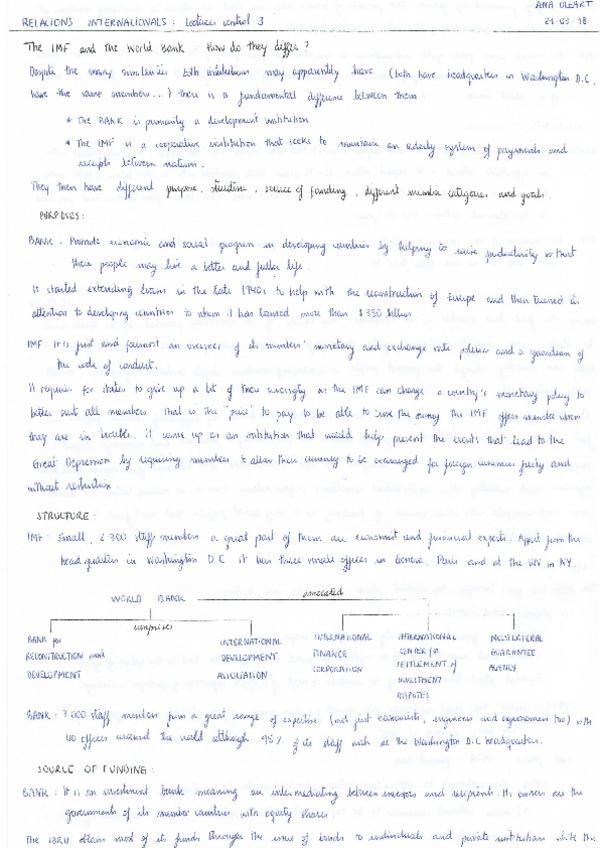 ANA OLEART
RELACIONS INTERNACIONALS: Lectures control 3
21-03-98
The IMF and the World Bank. How do they differ?
Despite the many similarities both institutions may apparently have (both have headquarters in Washington D.C,
have the same members...) there is a fundamental difference between them
* The BANK is primarily a development institution
* The IMF is a cooperative institution that seeks to maintain an orderly system of payments and
receipts between nations.
They then have different purpose, structure, source of funding, different member categories and goals.
PURPOSES:
BANK: Promote economic and social progress in developing countries by helping to raise productivity so that
these people may live a better and fuller life.
It started extending loans in the late 1940s to help with the reconstruction of Europe and then turned its
attention to developing countries to whom it has loaned more than $330 billion
IMF: It is first and foremost an overseer of its members' monetary and exchange rate policies and a guardian of
the code of conduct.
It requires for states to give up a bit of their sovereignty as the IMF can change a country's monetary policy to
better suit all members. That is the "price" to pay to be able to use the money the IMF offers members when
they are in trouble. it came up as an institution that would help prevent the events that lead to the
Great Depression by requiring members to allow their currency to be exchanged for foreign currencies freely and
without restriction
STRUCTURE:
IMF: Small, 2.300 staff members a great part of them are economist and financial experts. Appart from the
headquarters in Washington D.C it has three small offices in Geneva, Paris and at the UN in NY.
WORLD BANK
associated
comprises
BANK for
RECONSTRUCTION and
DEVELOPMENT
INTERNATIONAL
DEVELOPMENT
INTERNATIONAL
FINANCE
CORPORATION
INTERNATIONAL
CENTER for
SETTLEMENT of
INVESTMENT
DISPUTES
MULTILATERAL
GUARANTEE
AGENCY
BANK: 7.000 staff members from a great range of expertise (not just economists, engineers and too) with
40 offices around the world although 95% of its staff work at the Washington D.C headquarters.
SOURCE OF FUNDING:
BANK: It is an investment bank meaning an intermediating between investors and recipients. Its owners are the
governments of its member countries with equity shares.
The IBRD obtains most of its funds through the issue of bonds to individuals and private institutions while the